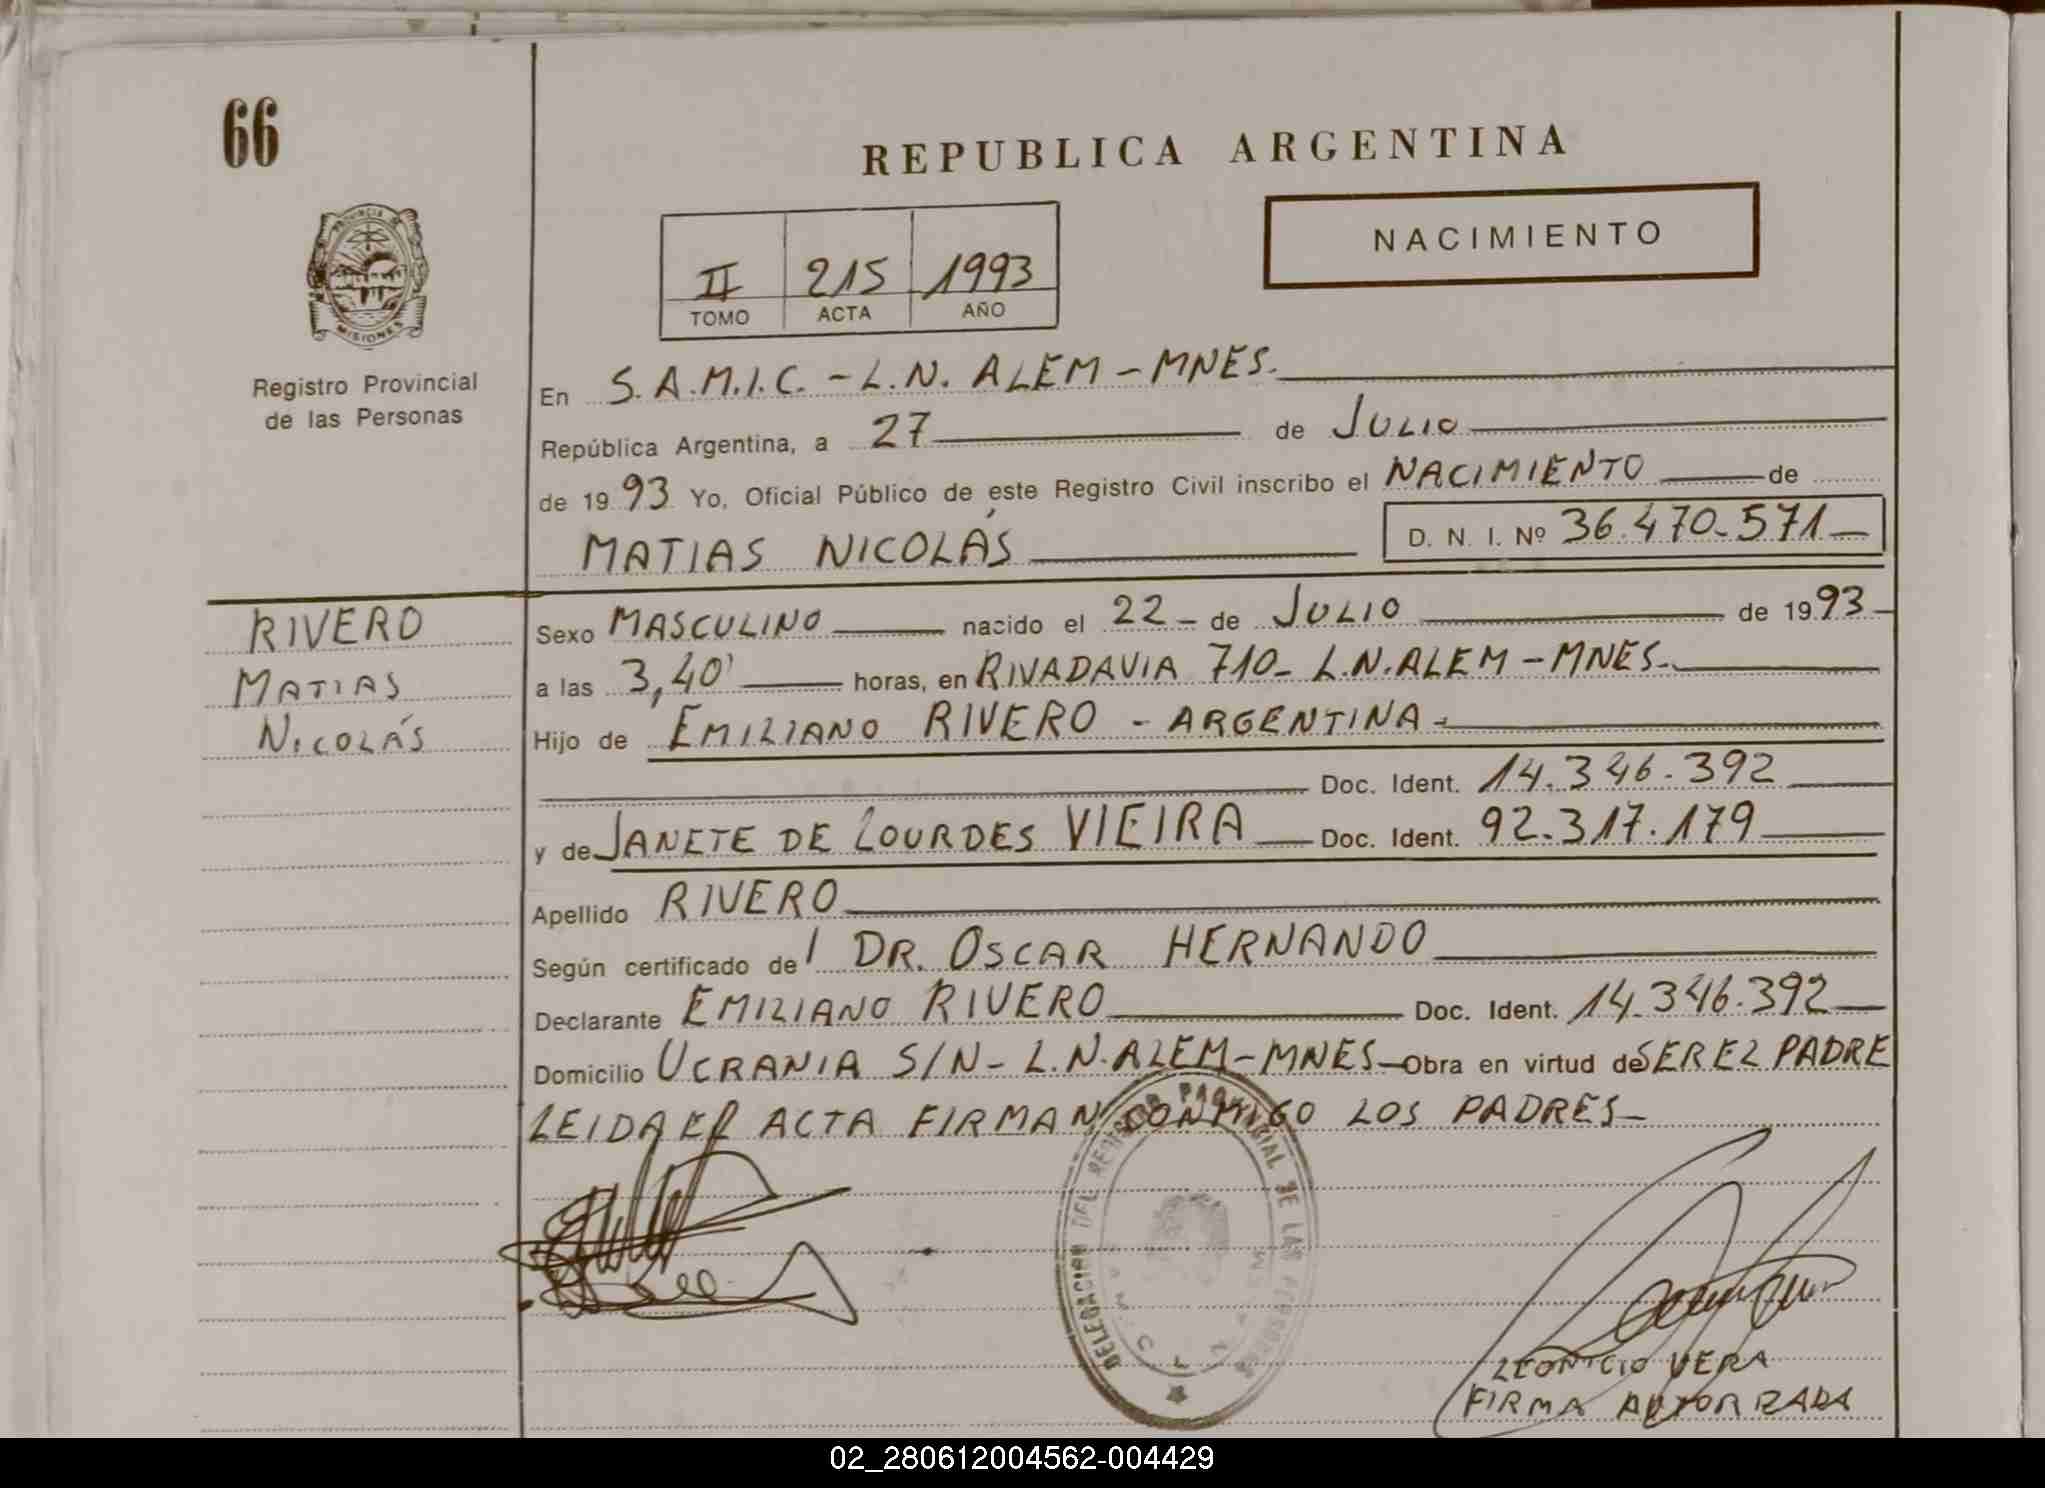 66
REPUBLICA ARGENTINA
NACIMIENTO
II 215 1993
TOMO ACTA AÑO
PROVINCIA DE
MISIONES
Registro Provincial
de las Personas
En S.A.M.I.C. - L.N. ALEM - MNES.
República Argentina, a 27 de JULIO
de 1993 Yo, Oficial Público de este Registro Civil inscribo el NACIMIENTO de
MATIAS NICOLÁS D. N. I. Nº 36.470.571
RIVERO
MATIAS
NICOLÁS
Sexo MASCULINO nacido el 22 de JULIO de 1993
a las 3,40' horas, en RIVADAVIA 710 - L.N. ALEM - MNES.
Hijo de EMILIANO RIVERO - ARGENTINA -
Doc. Ident. 14.346.392
y de JANETE DE LOURDES VIEIRA Doc. Ident. 92.317.179
Apellido RIVERO
Según certificado del DR. OSCAR HERNANDO
Declarante EMILIANO RIVERO Doc. Ident. 14.346.392
Domicilio UCRANIA S/N - L.N. ALEM - MNES - Obra en virtud de SER EL PADRE
LEIDA EL ACTA FIRMAN CONMIGO LOS PADRES -
DELEGACION DEL REGISTRO PROVINCIAL DE LAS PERSONAS
LEONICIO VERA
FIRMA AUTORIZADA
02_280612004562-004429